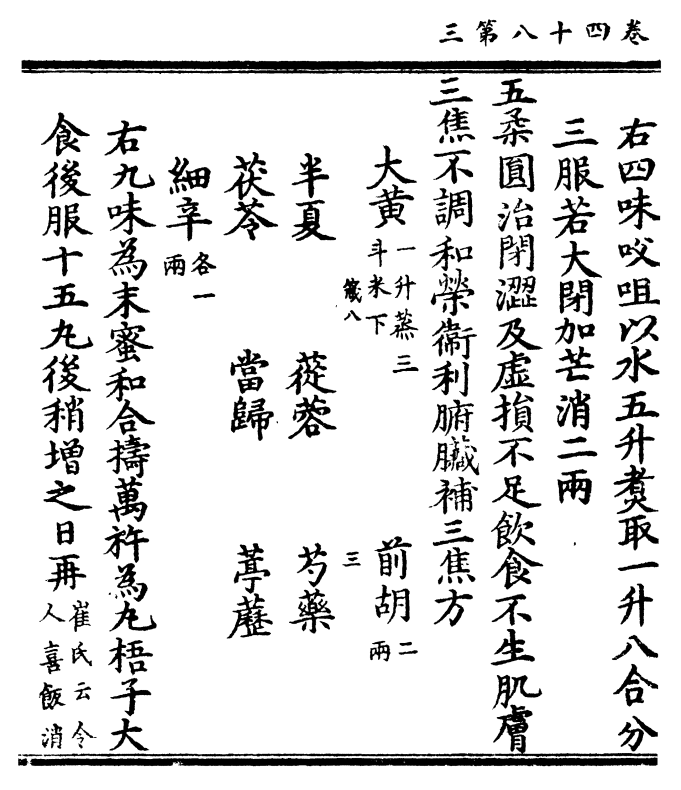 卷四十八第三
右四味㕮咀以水五升煑取一升八合分
三服若大閉加芒消二兩
五柔圓治閉澀及虛損不足飲食不生肌膚
三焦不調和榮衞利腑臟補三焦方
大黃一升蒸三斗米下 前胡二兩
箋八 三
半夏 蓯蓉 芍藥
茯苓 當歸 葶藶
細辛各一兩
右九味為末蜜和合擣萬杵為丸梧子大
食後服十五丸後稍增之日再崔氏云令人喜飯消